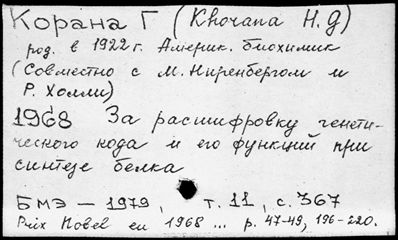 Корана Г (Khorana H. g)
род. в 1922 г. Америк. биохимик
(Совместно с М. Ниренбергом и
Р. Холли)
1968 За расшифровку генети-
ческого кода и его функций при
синтезе белка
БМЭ – 1979, т. 11, с. 367
Prix Nobel en 1968 ... p. 47-49, 196-220.